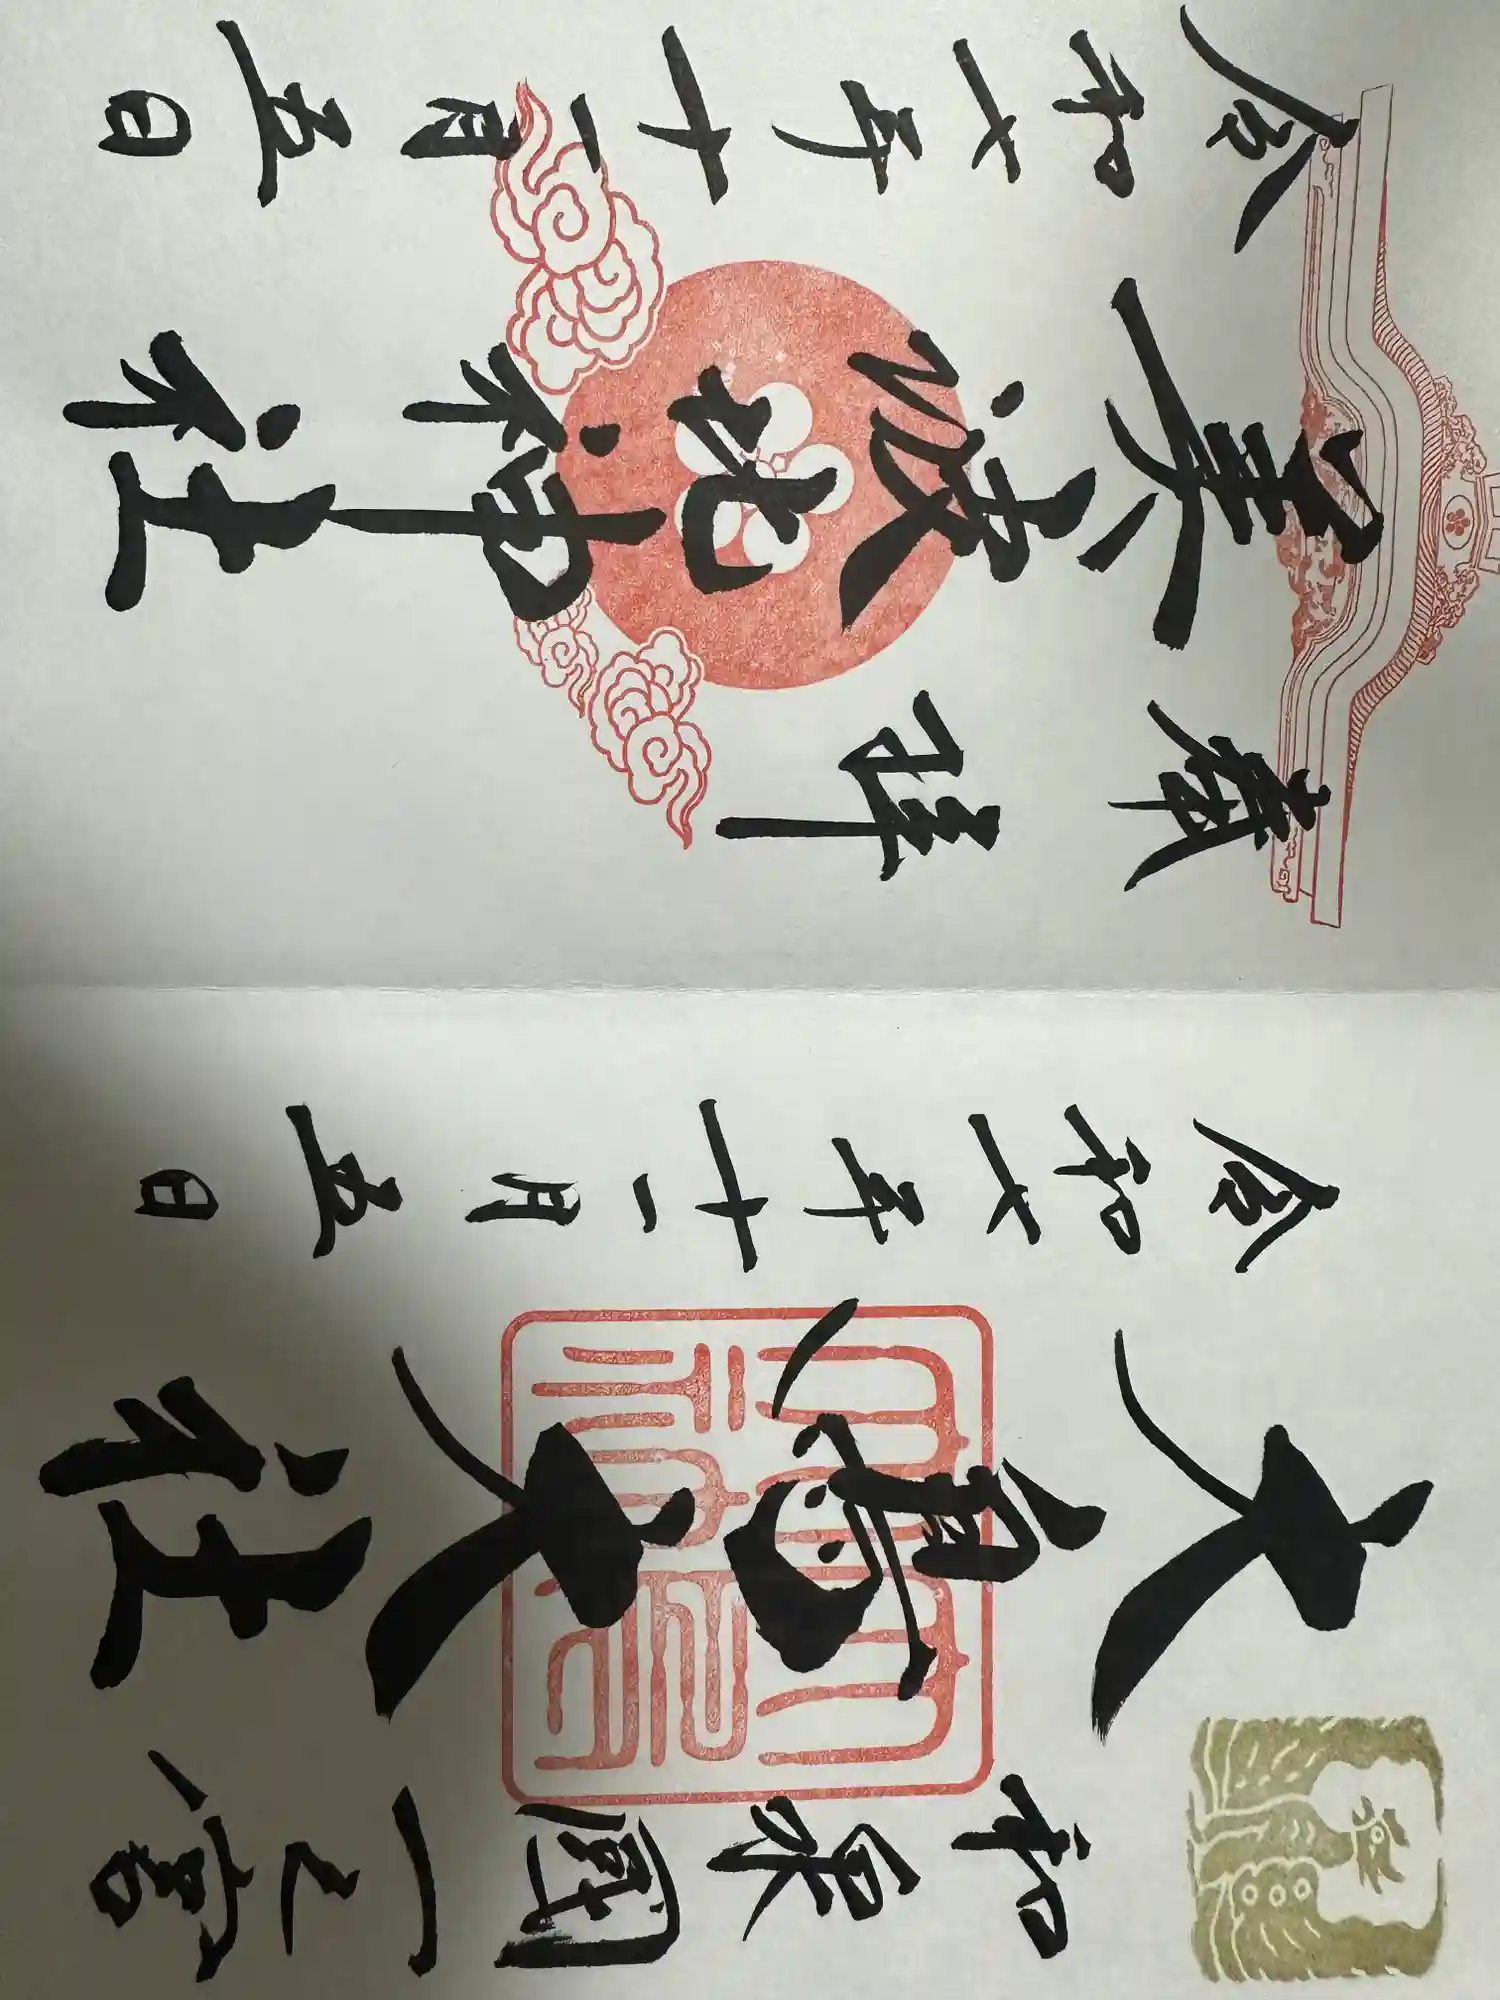 和泉國一之宮
大鳥大社
令和七年十一月五日
拝
美波比神社
令和七年十一月五日